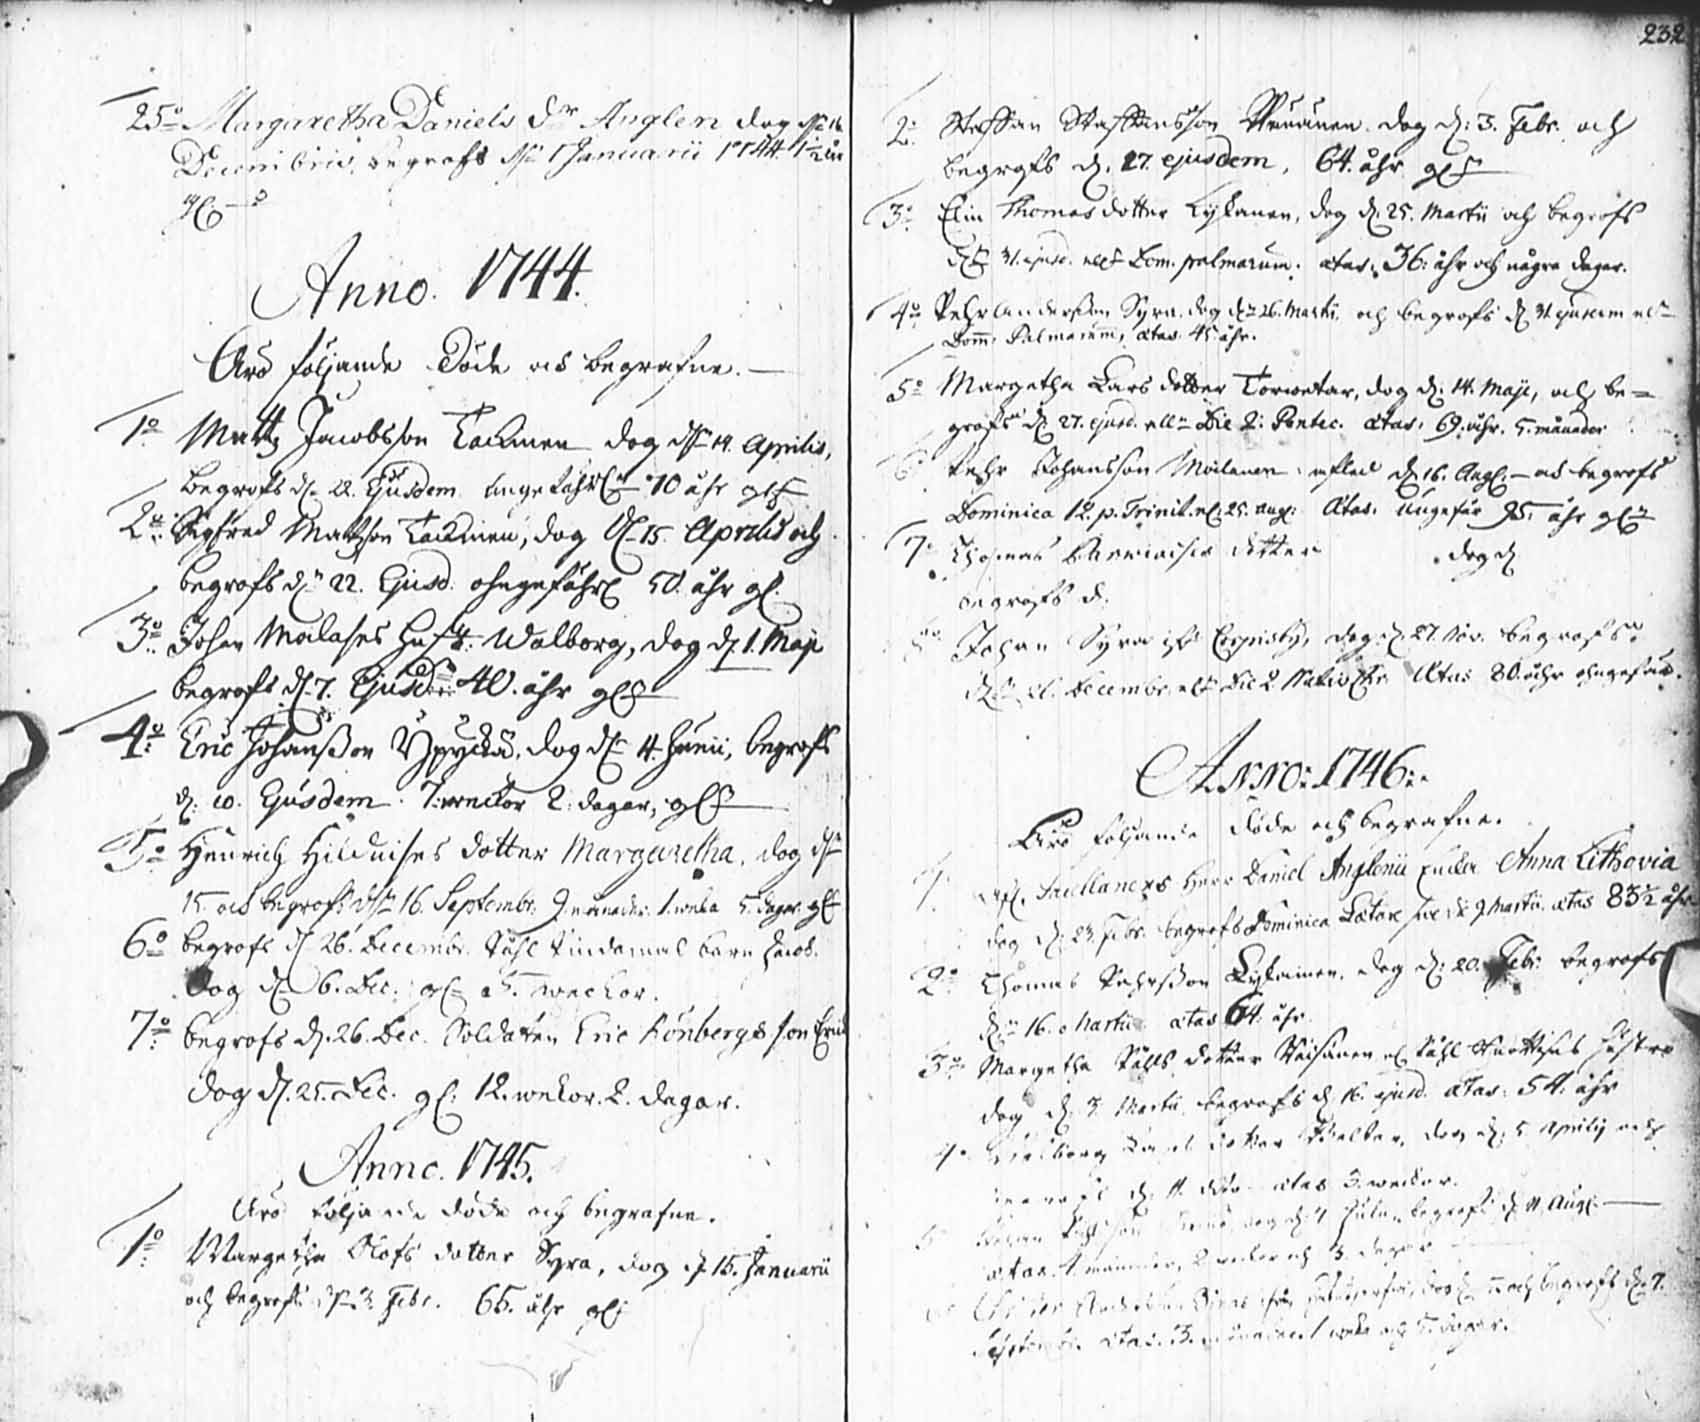 25o Margaretha Daniels dr Anglen dog dn 16
Decembris, begrofs dn 1 Januarii 1744. 1½ åhr
gl.
Anno. 1744.
Äro följande Döde och begrafne.
1o Matts Jacobsson Tackinen dog dn 14. Aprilis,
begrofs d. 22. Ejusdem ungefährl. 70 åhr gl.
2o Sigfred Mattsson Tackinen, dog d. 15. Aprilis och
begrofs d. 22. Ejusd. ohngefährl. 50. åhr gl.
3o Johan Malases hust. Walborg, dog d. 1. Maji
begrofs d. 7. Ejusd. 40. åhr gl.
4o Eric Johansson Ypyckä, dog d. 4. Junii, begrofs
d. 10. Ejusdem. 7. weckor 2. dagar, gl.
5o Henrich Hilduises dotter Margaretha, dog dn
15. och begrofs dn 16. Septembr. 9. månader. 1. weka 5. dagar. gl.
6o begrofs d. 26. Decembr. Påhl barn Jacob.
dog d. 6. Dec. gl. 5. weckor.
7o begrofs d. 26. Dec. Soldaten Eric Lönbergs son Eric
dog d. 25. Dec. gl. 12. wekor. 2. dagar.
Anno. 1745.
Äro följande döde och begrafne.
1o Margetha Olofs dotter Syra, dog d. 15. Januarii
och begrofs d. 3. Febr. 65. åhr gl.
232
2o Staffan Staffansson dog d: 3. Febr. och
begrofs d. 17. ejusdem, 64. åhr gl.
3o Elin Thomasdotter Lykanen, dog d. 25. Martii och begrofs
d. 31. ejusd. Dom. palmarum. ætas. 36. åhr och några dagar.
4o Pehr Andersson Syra. dog d. 26. Martii och begrofs d. 31. ejusdem
Dom. Palmarum, ætas. 45. åhr.
5o Margetha Lars dotter dog d. 14. Maji, och be=
grofs d. 27. ejusd. Die 2. Pentec. ætas. 69. åhr. 5. månader
6o Pehr Johansson Moilanen afled d. 16. Aug. och begrofs
Dominica 12. p. Trinit. 25. Aug. Ætas. ungefär 95. åhr gl.
7o Thomas dotter dog d.
begrofs d.
Johan Syra dog d. 27. Nov. begrofs
Decembr. Die 2 Ætas 80. åhr ohngefär.
Anno: 1746:
Äro följande döde och begrafne.
1. Sacellanens Herr Daniel Anglenii Anna Lithovia
dog d. 23. Febr. begrofs Dominica Lætare d. 9 Martii. ætas 83½ åhr
2o Thomas Pehrsson Lykainen. dog d. 20. Febr. begrofs
d. 16. Martii. ætas 64. åhr
3o Margetha Påhls dotter Väisänen Påhl hustru
dog d. 3. Martii begrofs d. 16. ejusd. ætas. 54. åhr
4o Walborg dotter dog d. 5 Aprilis och
begrofs d. 11. ætas 3. weckor.
5 begrofs d. 11. Aug.
ætas. månader, 2 wekor och 3. dagar
och begrofs d. 7.
Septembr. ætas. 3. månader 1 weka och 5. dagar.